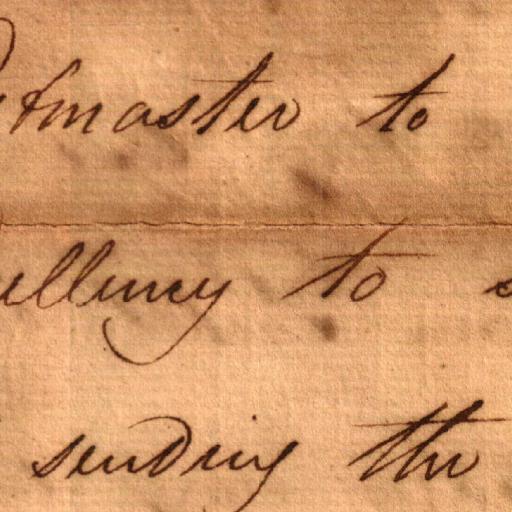 Postmaster to
ellency to s
sending the